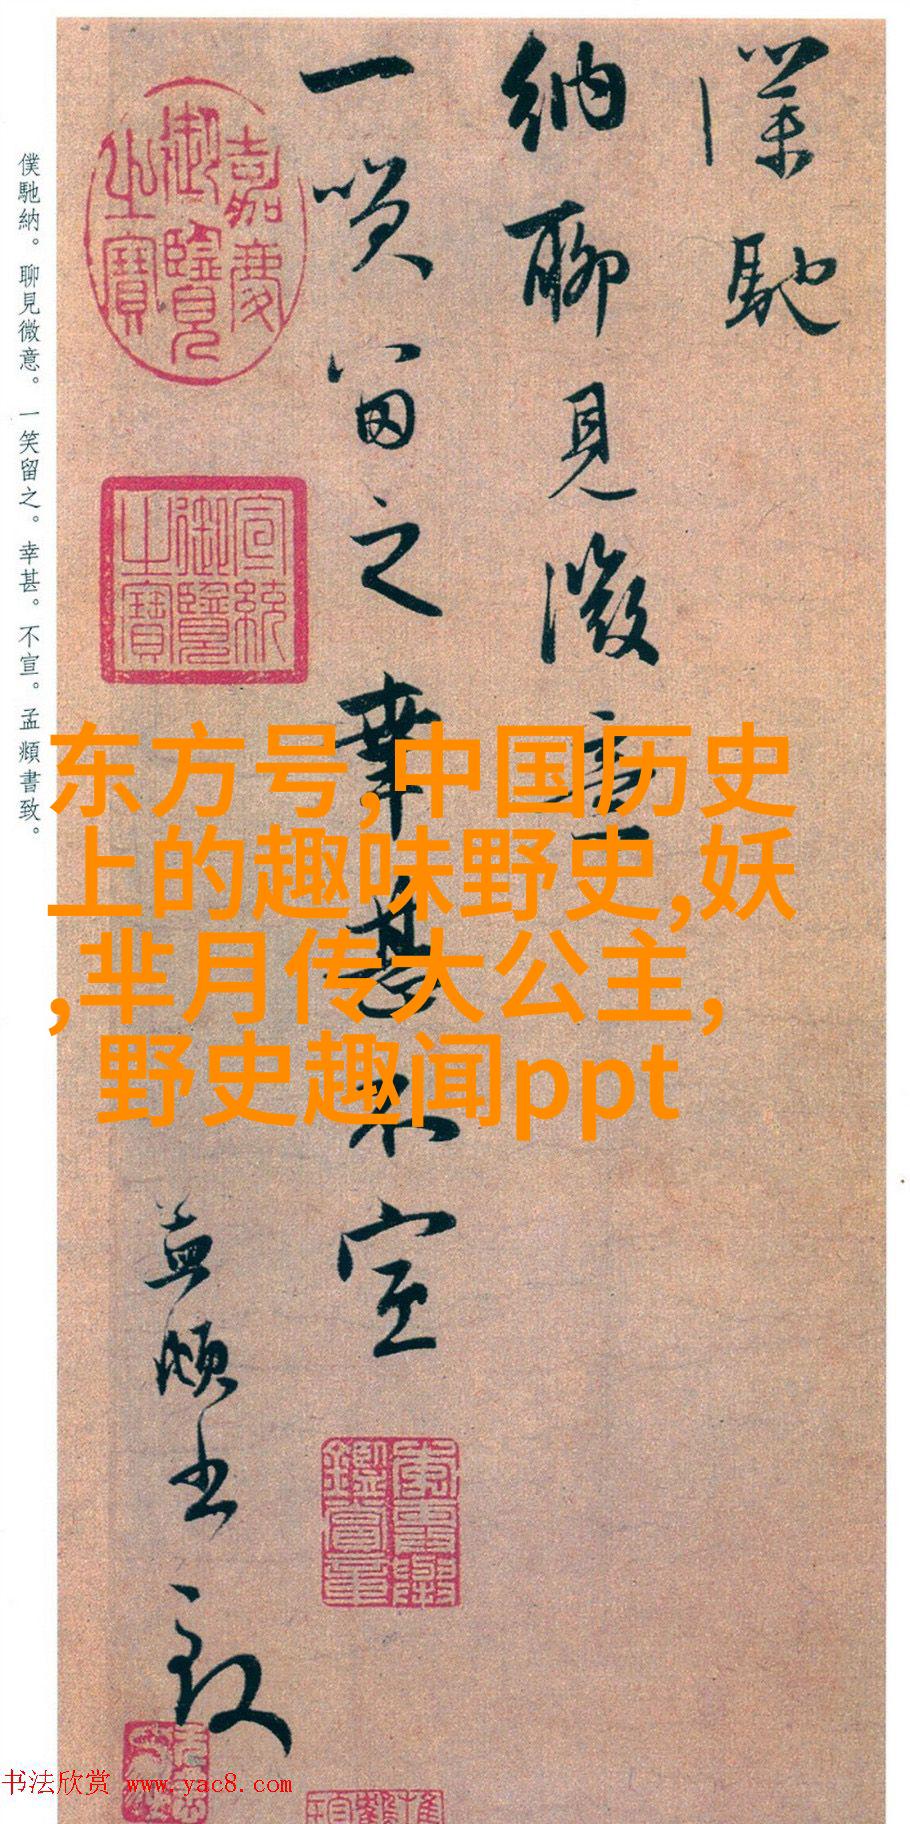 僕馳
納聊見微意
一笑留之幸甚不宣
孟頫書致
嘉慶御覽之寶
宣統御覽之寶
僕馳納。聊見微意。一笑留之。幸甚。不宣。孟頫書致。
东方号,中国历史
上的趣味野史,妖
,芈月传大公主,
野史趣闻ppt
书法欣赏 www.yac8.com